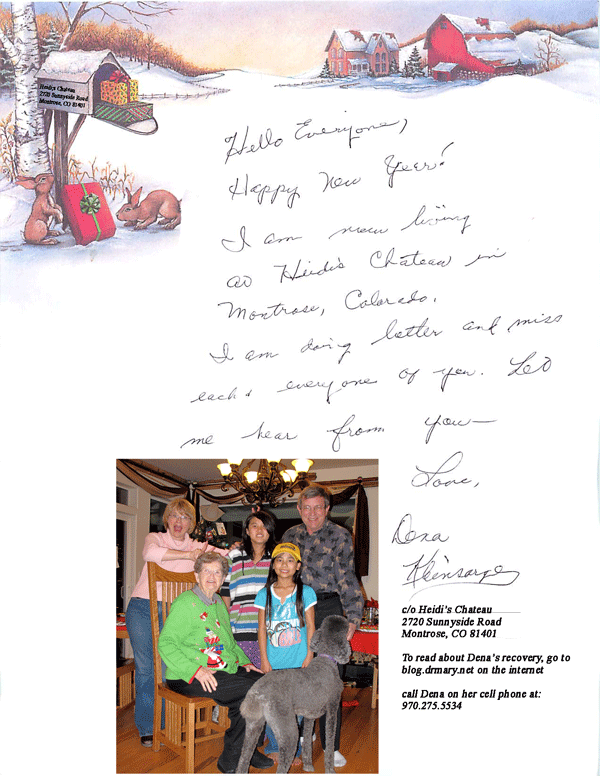 Heidi's Chateau
2720 Sunnyside Road
Montrose, CO 81401
Hello Everyone,
Happy New Year!
I am now living
at Heidi's Chateau in
Montrose, Colorado.
I am doing better and miss
each & everyone of you. Let
me hear from you—
Love,
Dena
Kleinsorge
c/o Heidi's Chateau
2720 Sunnyside Road
Montrose, CO 81401
To read about Dena's recovery, go to
blog.drmary.net on the internet
call Dena on her cell phone at:
970.275.5534